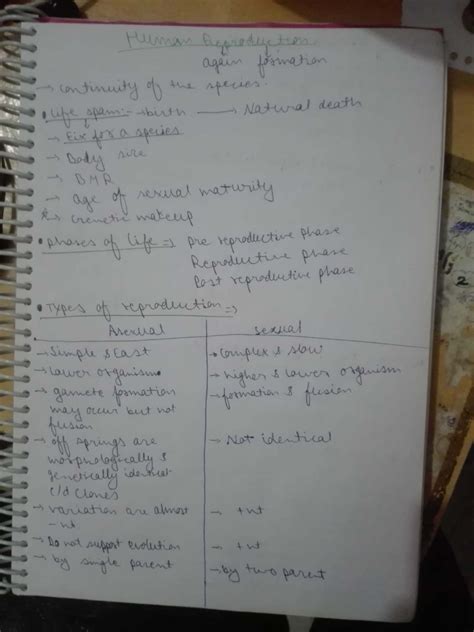 Human Reproduction
again formation
→ continuity of the species.
• Life span:- → birth → Natural death
→ Fix for a species
→ Body size
→ BMR
→ age of sexual maturity
→ Genetic makeup
• phases of life => pre reproductive phase
Reproductive phase
Post reproductive phase
• Types of reproduction =>
Asexual
Sexual
→ Simple & East
• Complex & slow
→ Lower organism
→ higher & lower organism
→ gamete formation
may occur but not
fusion
→ formation & fusion
→ off springs are
morphologically &
genetically identical
c/d clones
→ Not identical
→ variation are almost
-nt
→ +nt
→ Do not support evolution
→ +nt
→ by single parent
→ by two parent
2